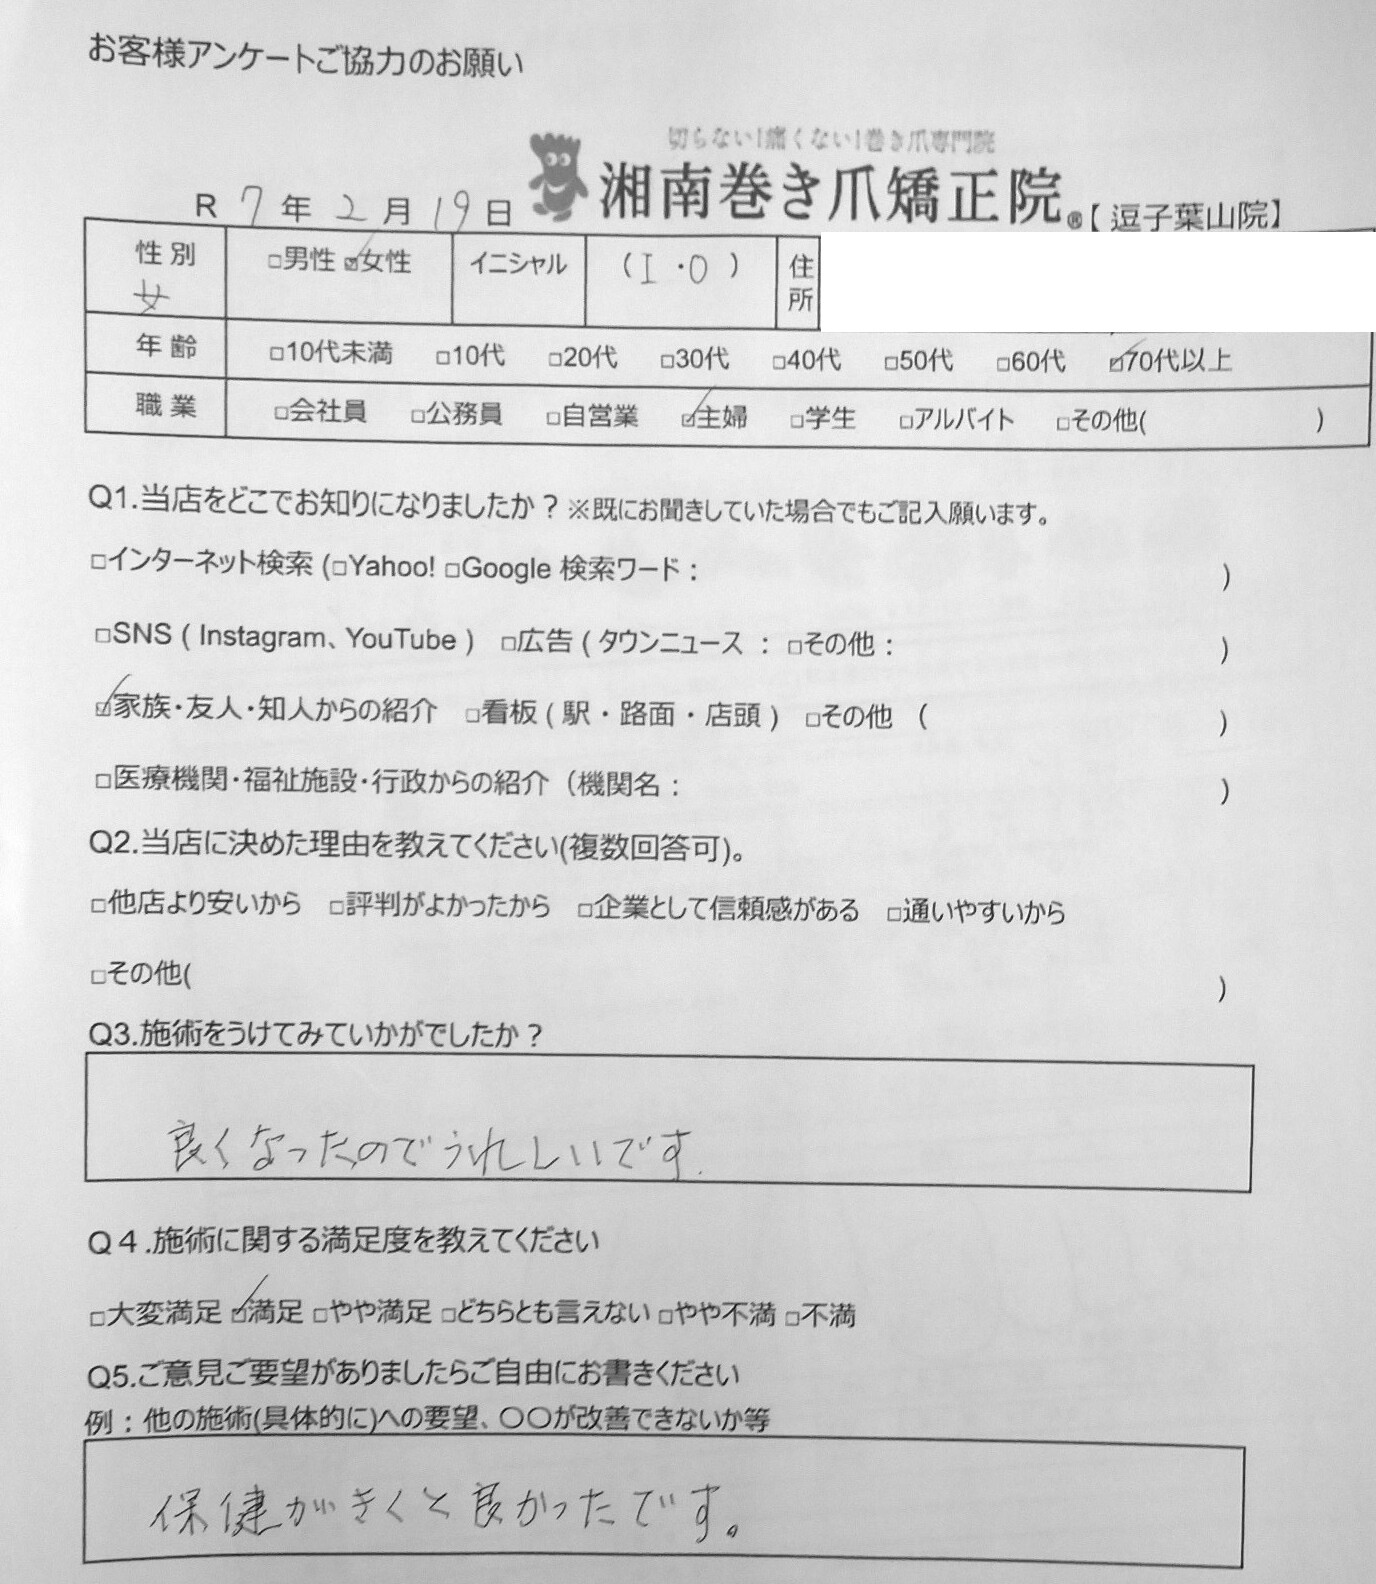 お客様アンケートご協力のお願い
切らない!痛くない!巻き爪専門院
湘南巻き爪矯正院®【逗子葉山院】
R 7 年 2 月 19 日
性別 女 □男性 ☑女性 イニシャル (I・O) 住所
年齢 □10代未満 □10代 □20代 □30代 □40代 □50代 □60代 ☑70代以上
職業 □会社員 □公務員 □自営業 ☑主婦 □学生 □アルバイト □その他( )
Q1.当店をどこでお知りになりましたか？※既にお聞きしていた場合でもご記入願います。
□インターネット検索 (□Yahoo! □Google 検索ワード： )
□SNS ( Instagram、YouTube ) □広告 ( タウンニュース ： □その他： )
☑家族・友人・知人からの紹介 □看板 ( 駅 ・ 路面 ・ 店頭 ) □その他 ( )
□医療機関・福祉施設・行政からの紹介（機関名： )
Q2.当店に決めた理由を教えてください(複数回答可)。
□他店より安いから □評判がよかったから □企業として信頼感がある □通いやすいから
□その他( )
Q3.施術をうけてみていかがでしたか？
良くなったのでうれしいです.
Q４.施術に関する満足度を教えてください
□大変満足 ☑満足 □やや満足 □どちらとも言えない □やや不満 □不満
Q5.ご意見ご要望がありましたらご自由にお書きください
例：他の施術(具体的に)への要望、〇〇が改善できないか等
保健がきくと良かったです。